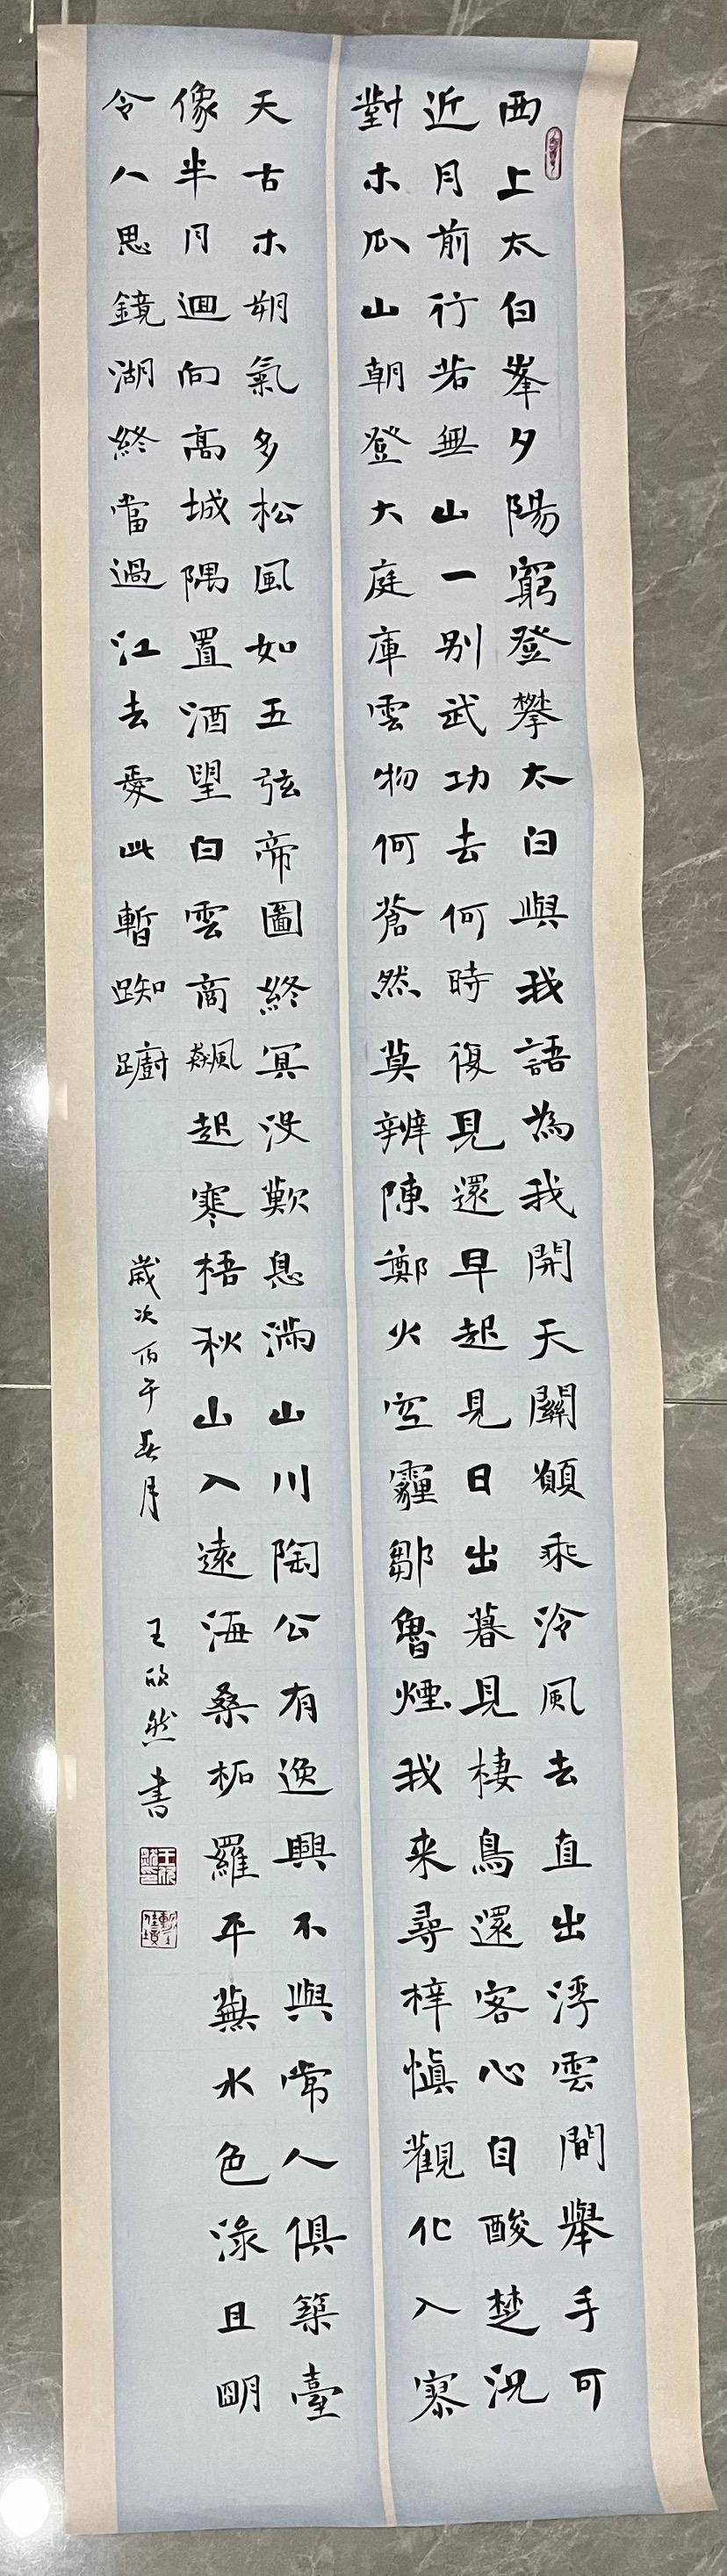 西上太白峯夕陽窮登攀太白與我語為我開天關願乘泠風去直出浮雲間舉手可
近月前行若無山一别武功去何時復見還早起見日出暮見棲鳥還客心自酸楚況
對木瓜山朝登大庭庫雲物何蒼然莫辨陳鄭火空霾鄒魯煙我来尋梓慎觀化入寥
天古木朔氣多松風如五弦帝圖終冥没歎息滿山川陶公有逸興不與常人俱築臺
像半月迴向高城隅置酒望白雲商飆起寒梧秋山入遠海桑柘羅平蕪水色淥且明
令人思鏡湖終當過江去愛此暫踟躕
歲次丙午春月
王欣然書